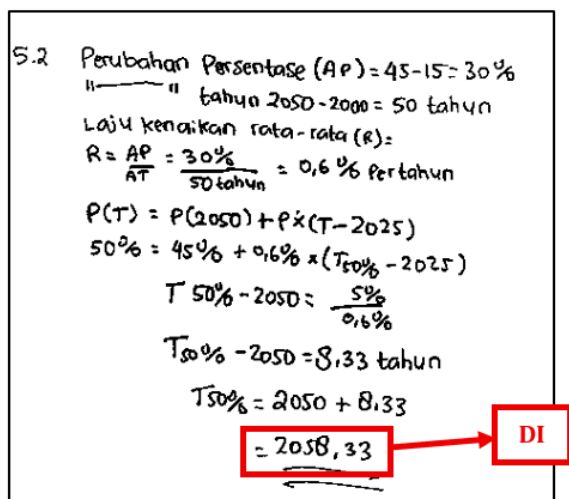 5.2 Perubahan Persentase (AP) = 45-15 = 30%
"———" tahun 2050-2000 = 50 tahun
Laju kenaikan rata-rata (R) =
R = AP/AT = 30%/50 tahun = 0,6% Pertahun
P(T) = P(2050) + P × (T - 2025)
50% = 45% + 0,6% × (T50% - 2025)
T 50% - 2050 = 5%/0,6%
T50% - 2050 = 8,33 tahun
T50% = 2050 + 8.33
= 2058,33
DI